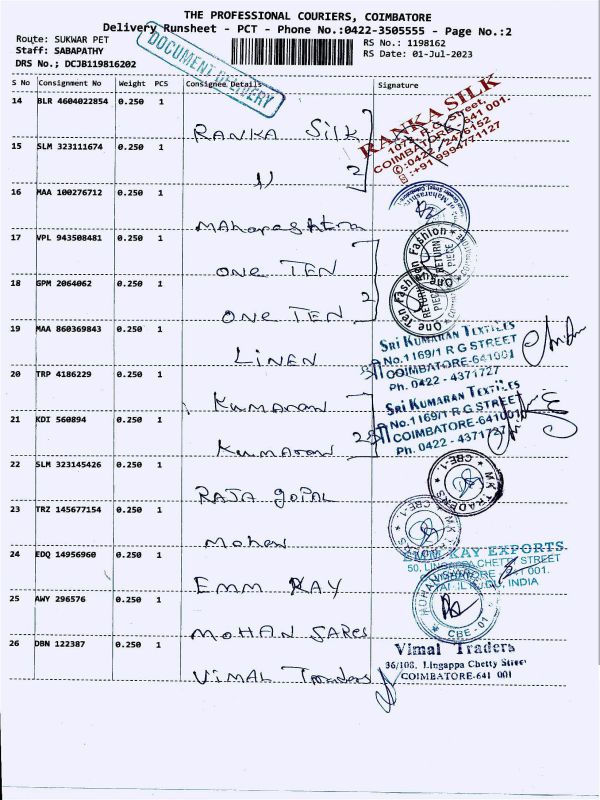 THE PROFESSIONAL COURIERS, COIMBATORE
Delivery Runsheet - PCT - Phone No.:0422-3505555 - Page No.:2
Route: SUKWAR PET
RS No.: 1198162
Staff: SABAPATHY
RS Date: 01-Jul-2023
DRS No.; DCJB119816202
DOCUMENT DELIVERY
S No Consignment No Weight PCS Consignee Details Signature
14 BLR 4604022854 0.250 1
RANKA Silk
RANKA SILK
1072, R.G. Street,
COIMBATORE - 641 001.
:0422-2476152
:+91 9994771127
15 SLM 323111674 0.250 1
11 2
16 MAA 100276712 0.250 1
Maharashtra
17 VPL 943508481 0.250 1
ONE TEN
One Ten Fashion
RETURN
PIECE
18 GPM 2064062 0.250 1
ONE TEN 2
One Ten Fashion
RETURN
PIECE
19 MAA 860369843 0.250 1
LINEN
SRI KUMARAN TEXTILES
No.1169/1 R G STREET
COIMBATORE-641001
Ph. 0422 - 4371727
20 TRP 4186229 0.250 1
Kumaran
SRI KUMARAN TEXTILES
No.1169/1 R G STREET
COIMBATORE-641001
Ph. 0422 - 4371727
21 KDI 560894 0.250 1
Kumaran 2
22 SLM 323145426 0.250 1
RAJA GOPAL
MK TRADERS CBE-1
23 TRZ 145677154 0.250 1
Mohan
MK TRADERS CBE-1
24 EDQ 14956960 0.250 1
EMM KAY
EMM KAY EXPORTS
50, LINGAPPA CHETTY STREET
COIMBATORE - 641 001.
TAMIL NADU, INDIA
25 AWY 296576 0.250 1
MOHAN SARes
MOHAN
CBE - 01
26 DBN 122387 0.250 1
VIMAL Traders
Vimal Traders
36/108, Lingappa Chetty Street
COIMBATORE-641 001